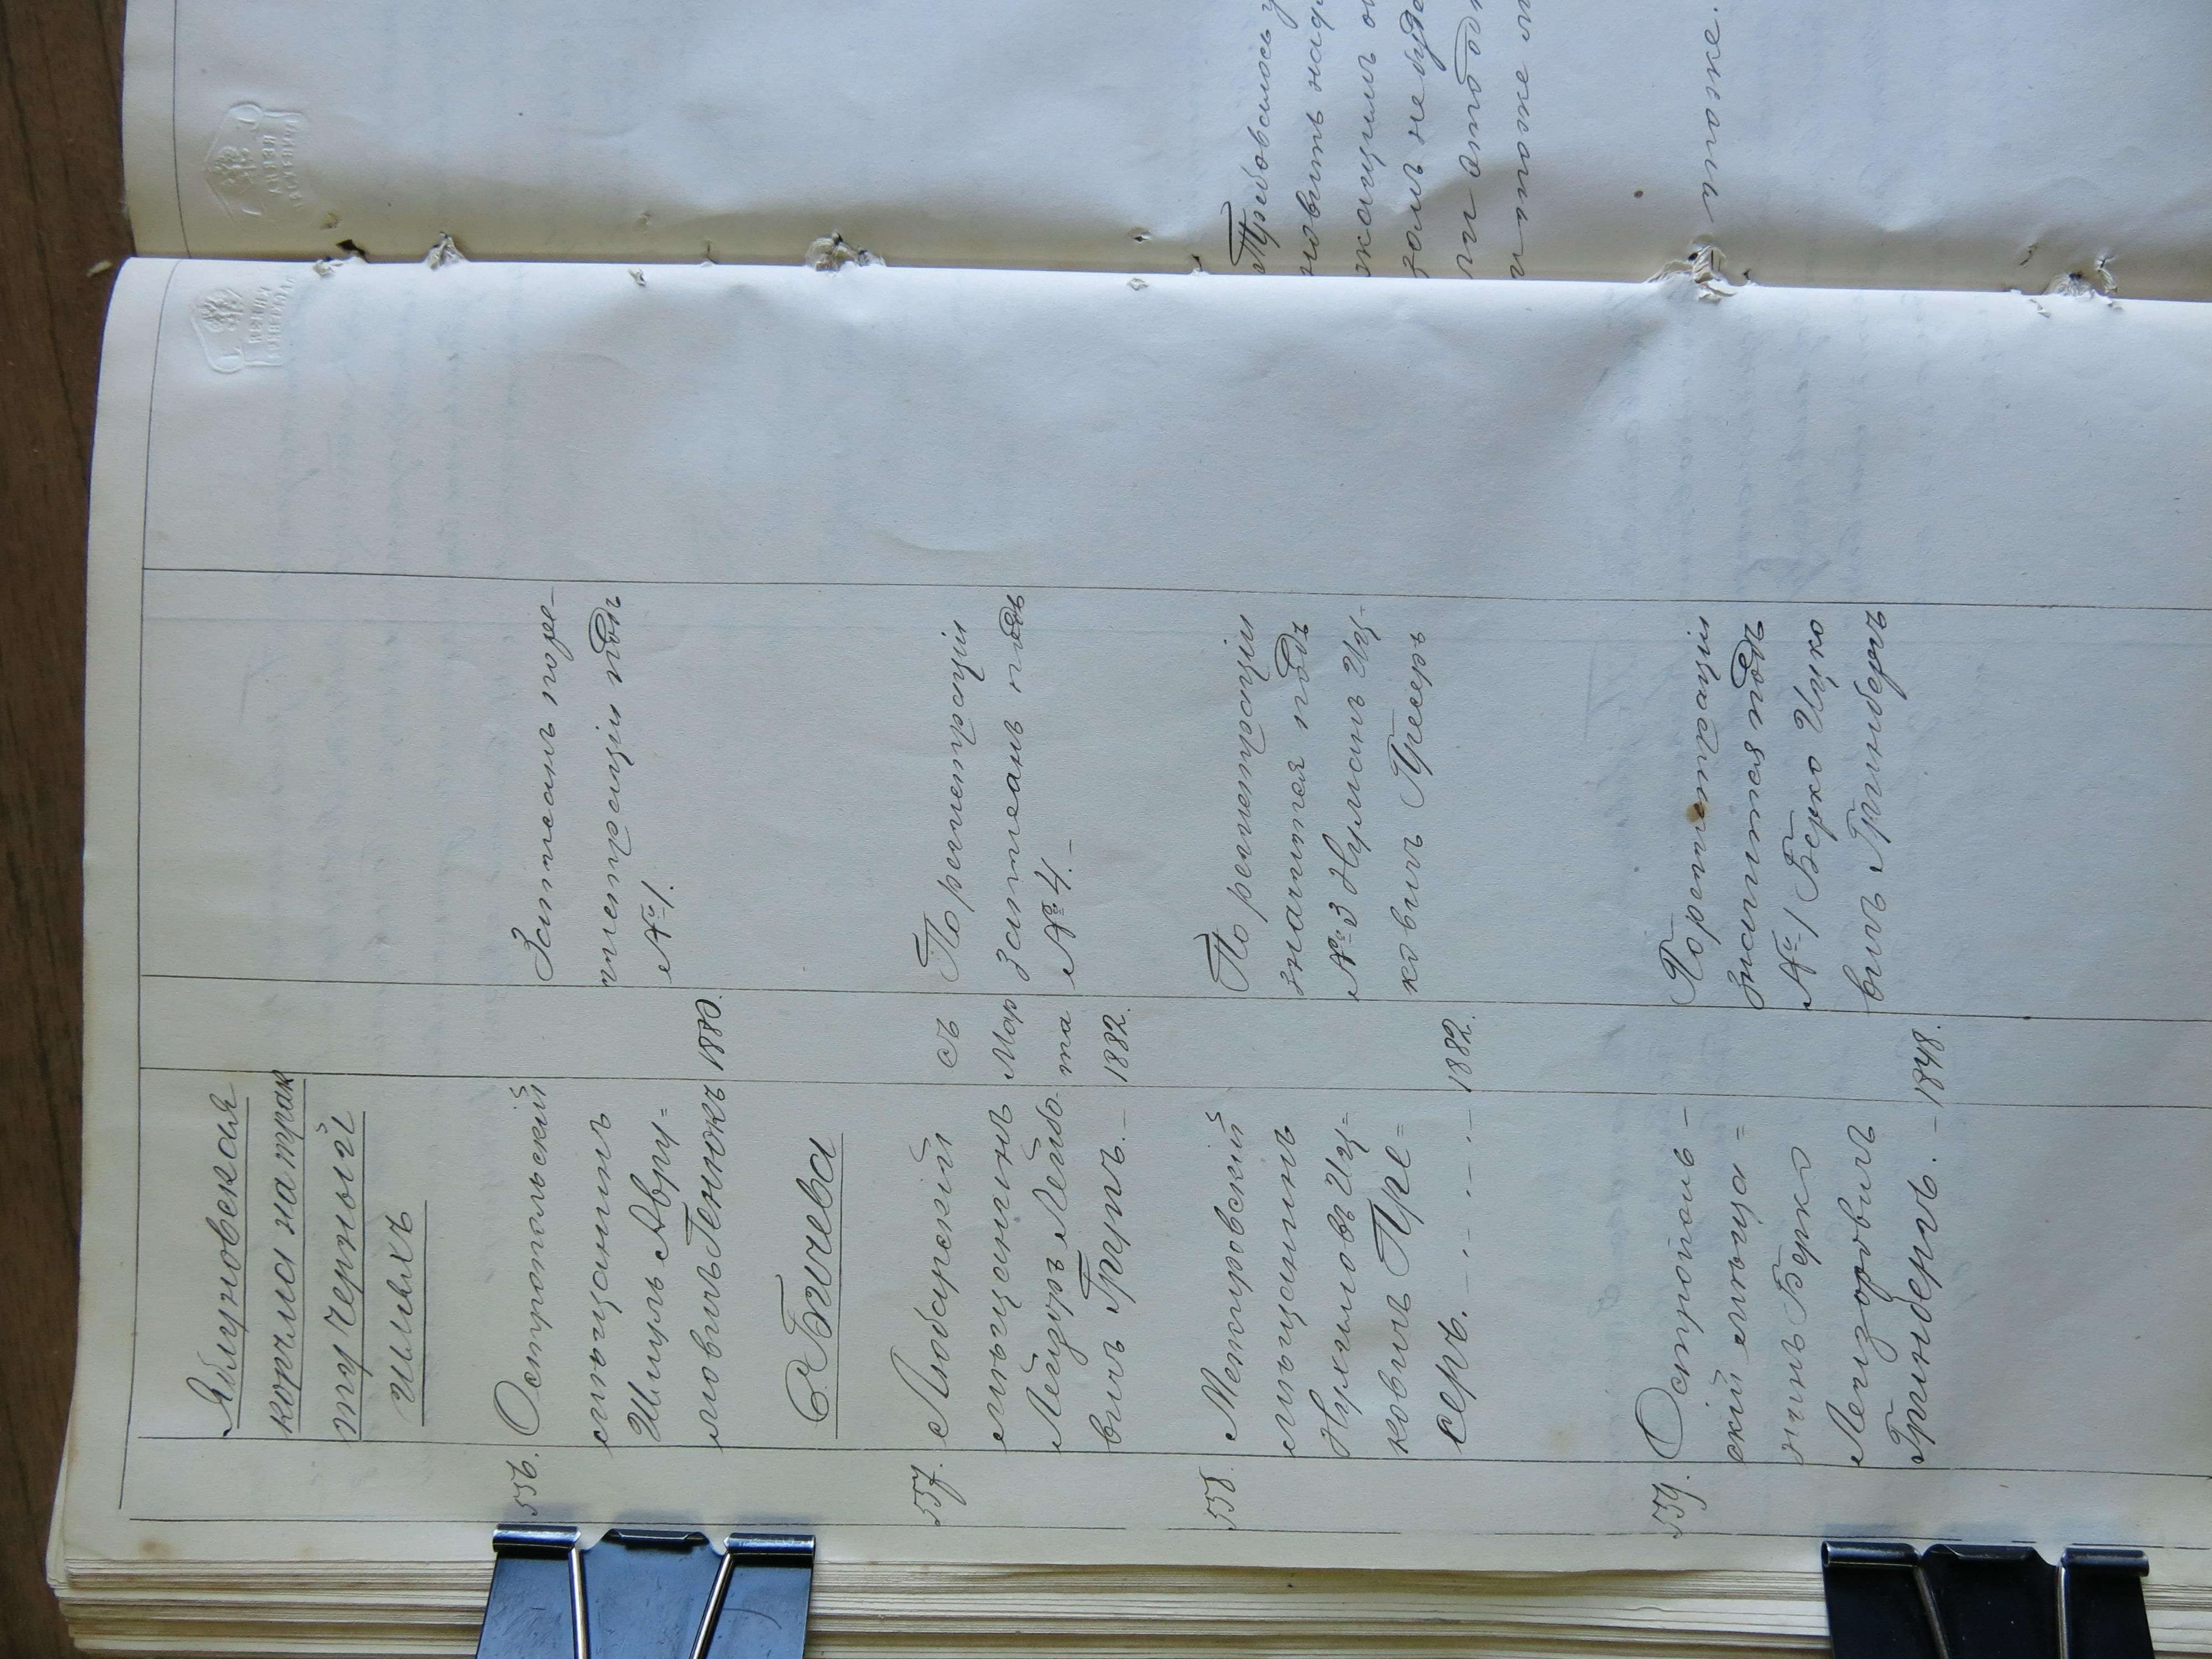 Яблуновская
корчма на трак
ту Черный
Шляхъ
556. Остропольскій
мѣщанинъ
Шмуль Авру=
мовичъ Генюкъ
1880.
Записанъ по ре-
гистраціи подъ
№ 1.
с. Бичева
557. Любарскій
мѣщанинъ
Лейзоръ Лейбо-
вичъ Групъ. –
съ
Мар
та
1882.
По регистраціи
записанъ подъ
№ 4. –
558.
мѣщанинъ
Нухимовъ Иц=
ковичъ Пре=
серъ.
1882.
По регистраціи
значится подъ
№ 3 Нухимъ Иц-
ковичъ Пресеръ
559. Острополь-
скій мѣща=
нинъ Берко
Лейзоровичъ
Гринбергъ. –
1848.
По регистраціи
значится подъ
№ 1 Берко Ицко
вичъ Гринбергъ
Требовалось у
новить над
жащимъ о
и тоже
и тоже.